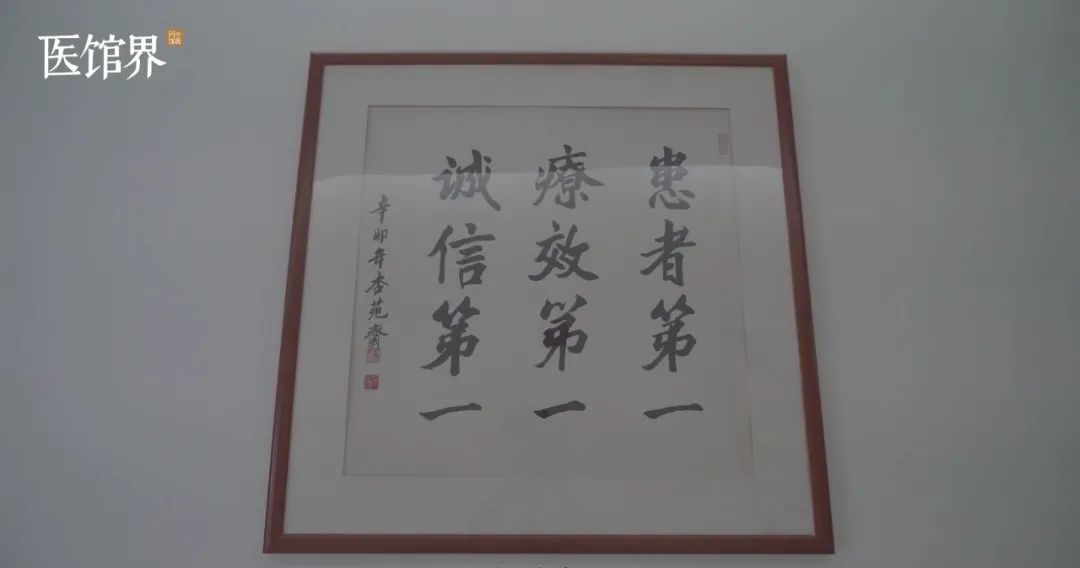 医馆界
患者第一
療效第一
诚信第一
辛卯年杏苑齋